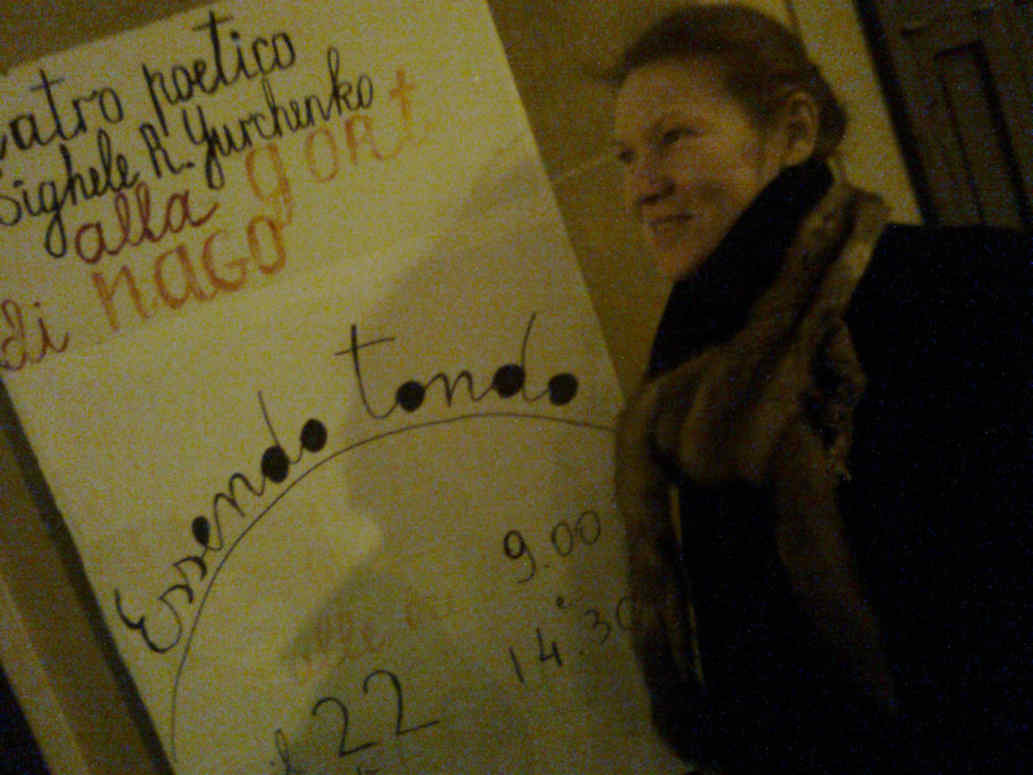 eatro poetico
Sighele R. Yurchenko
alla gont
di NAGO
Essendo tondo
alle ore 9.00
14.30
il 22